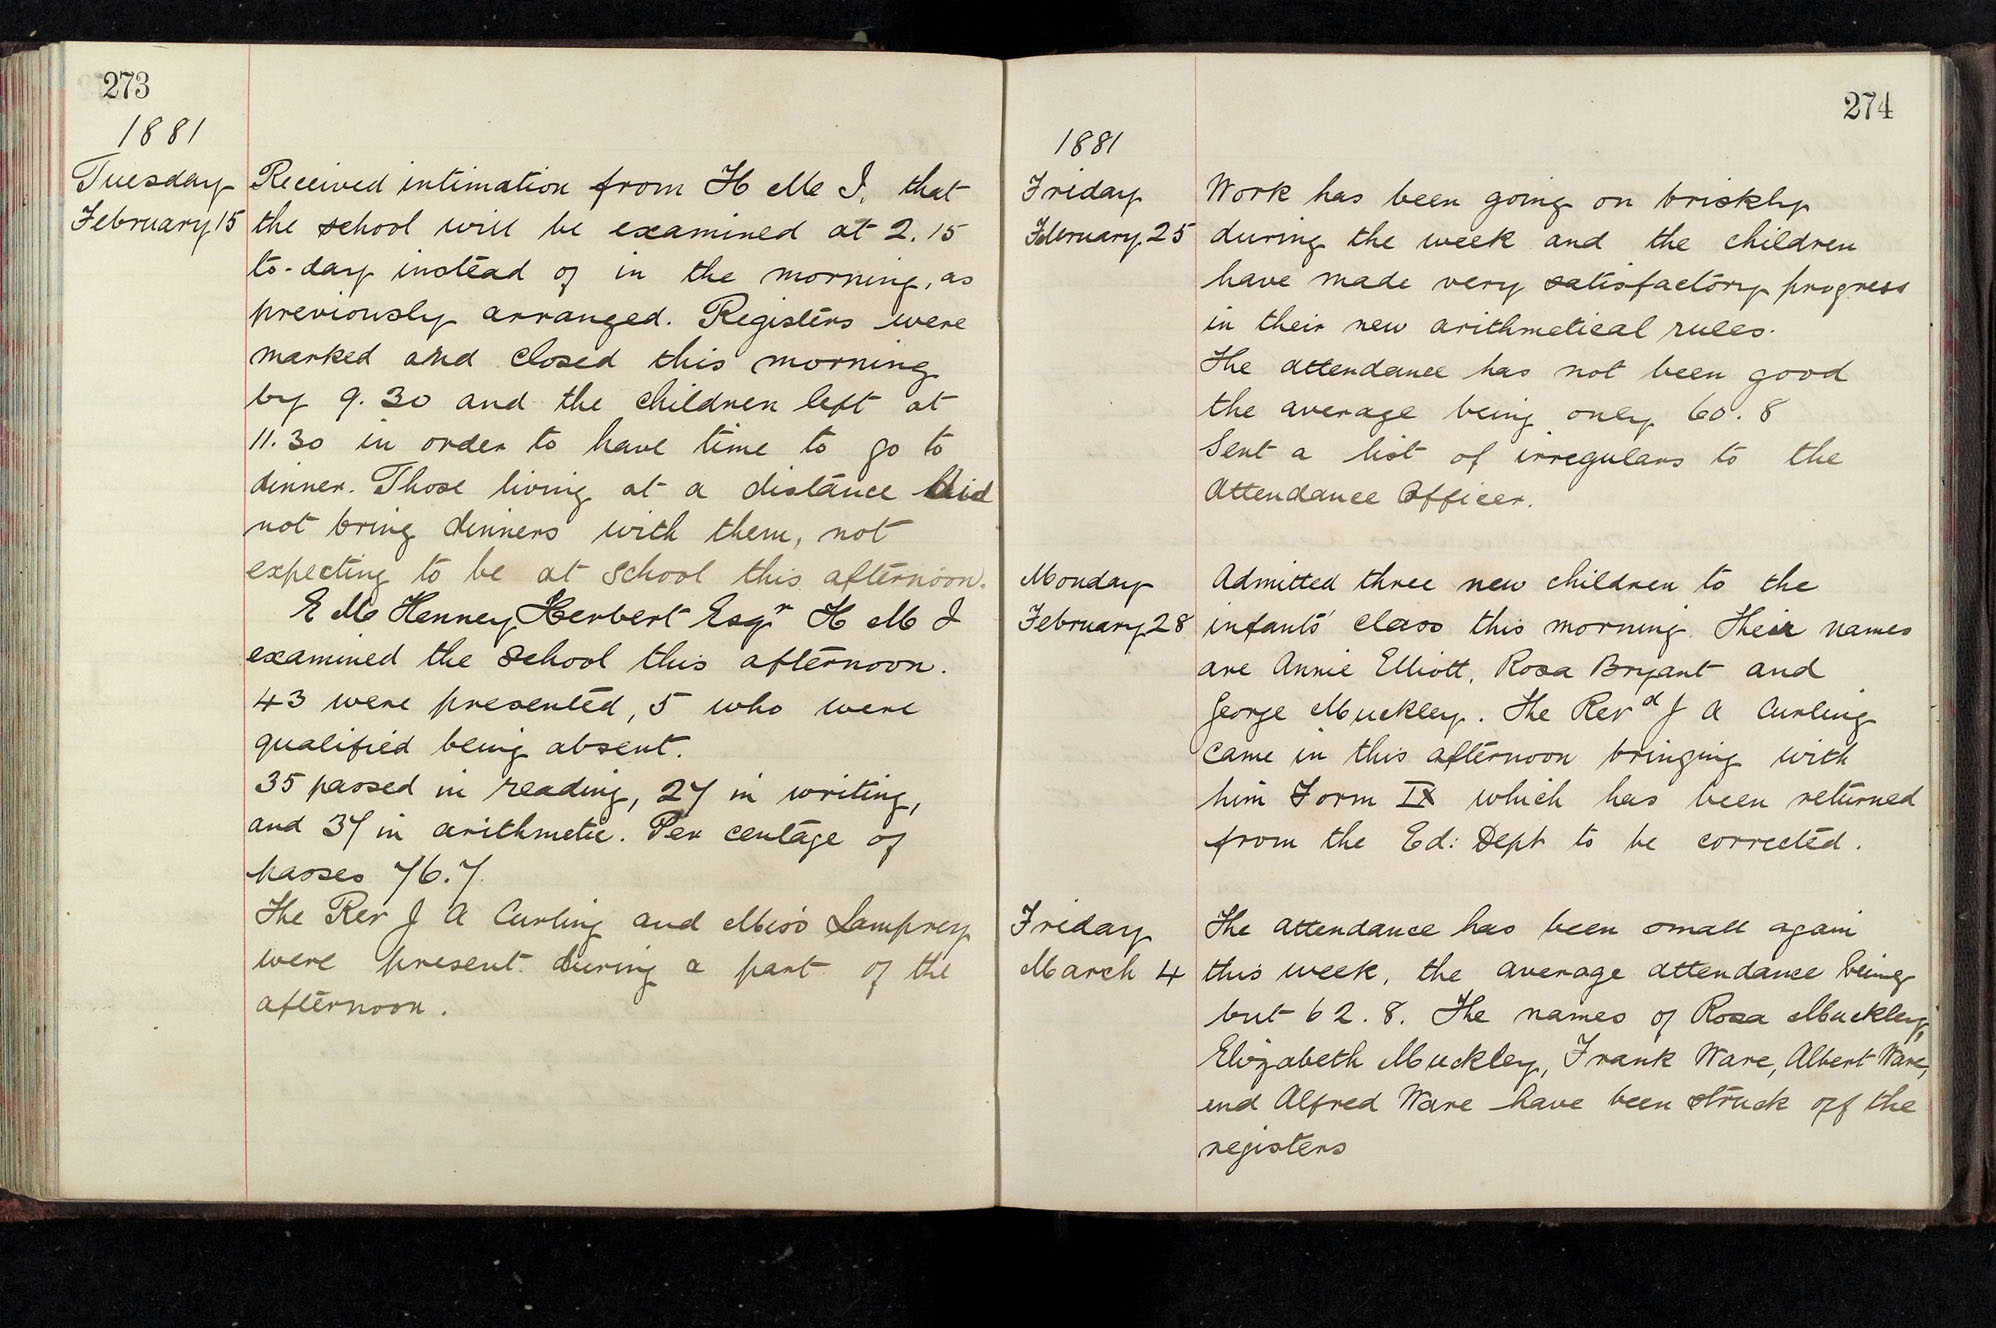 273
1881
Tuesday
February 15
Received intimation from H M I. that
the school will be examined at 2.15
to-day instead of in the morning, as
previously arranged. Registers were
marked and closed this morning
by 9.30 and the children left at
11.30 in order to have time to go to
dinner. Those living at a distance did
not bring dinners with them, not
expecting to be at school this afternoon.
E M Kenney Herbert Esqr H M I
examined the school this afternoon.
43 were presented, 5 who were
qualified being absent.
35 passed in reading, 27 in writing,
and 37 in arithmetic. Per centage of
passes 76.7.
The Rev J A Curling and Miss Lamprey
were present during a part of the
afternoon.
274
1881
Friday
February 25
Work has been going on briskly
during the week and the children
have made very satisfactory progress
in their new arithmetical rules.
The attendance has not been good
the average being only 60.8
Sent a list of irregulars to the
Attendance Officer.
Monday
February 28
Admitted three new children to the
infants' class this morning. Their names
are Annie Elliott, Rosa Bryant and
George Muckley. The Revd J A Curling
came in this afternoon bringing with
him Form IX which has been returned
from the Ed: Dept to be corrected.
Friday
March 4
The attendance has been small again
this week, the average attendance being
but 62.8. The names of Rosa Muckley,
Elizabeth Muckley, Frank Ware, Albert Ware,
and Alfred Ware have been struck off the
registers